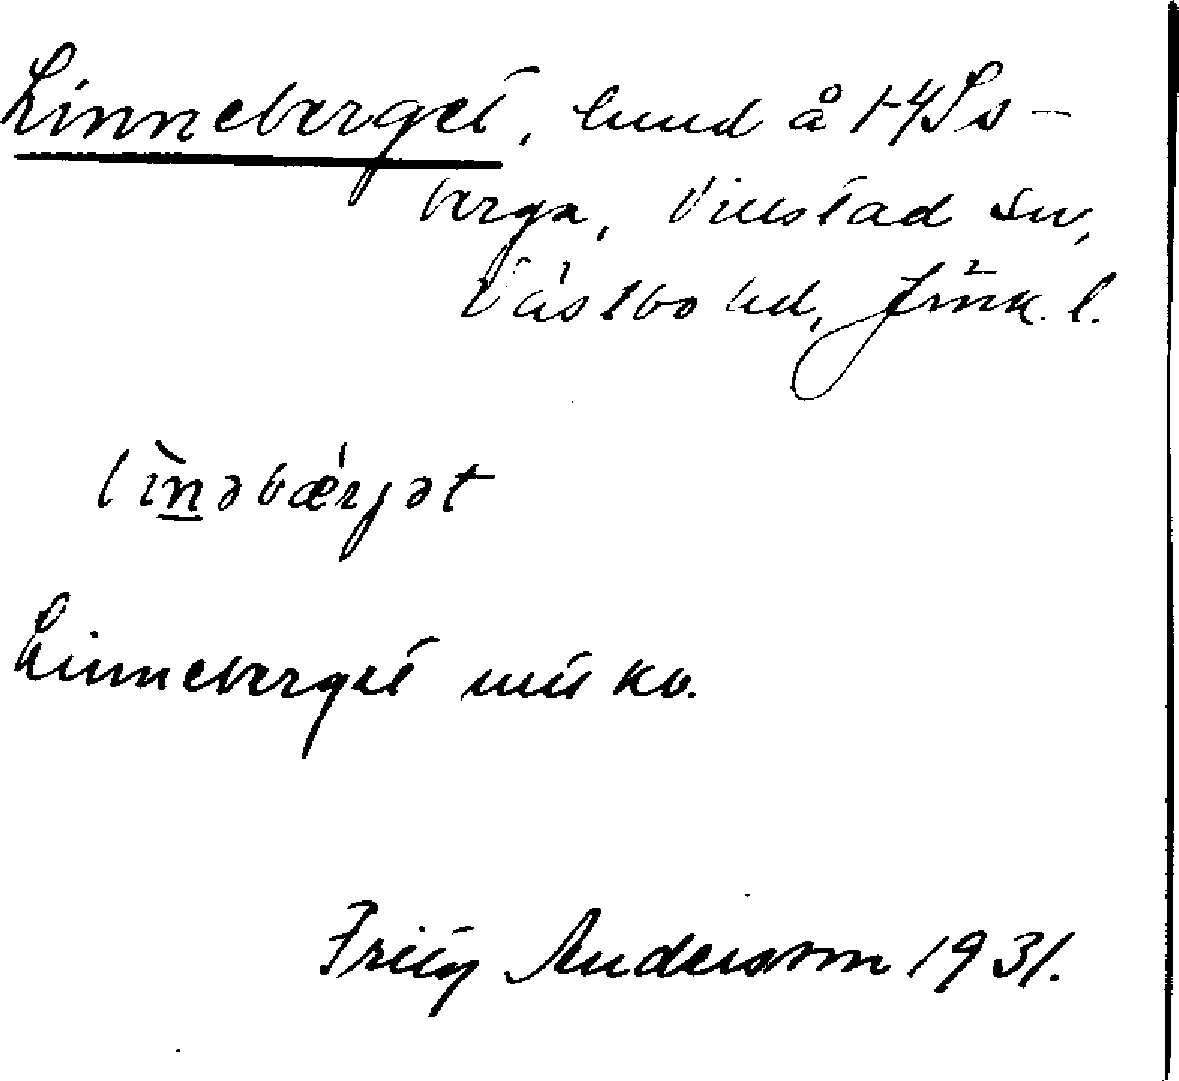 Linneberget, lund å
berga, Villstad sn,
Västbo hd, Jönk. l.
lìnəbæŕjət
Linneberget utt ko.
Fritz Andersson 1931.